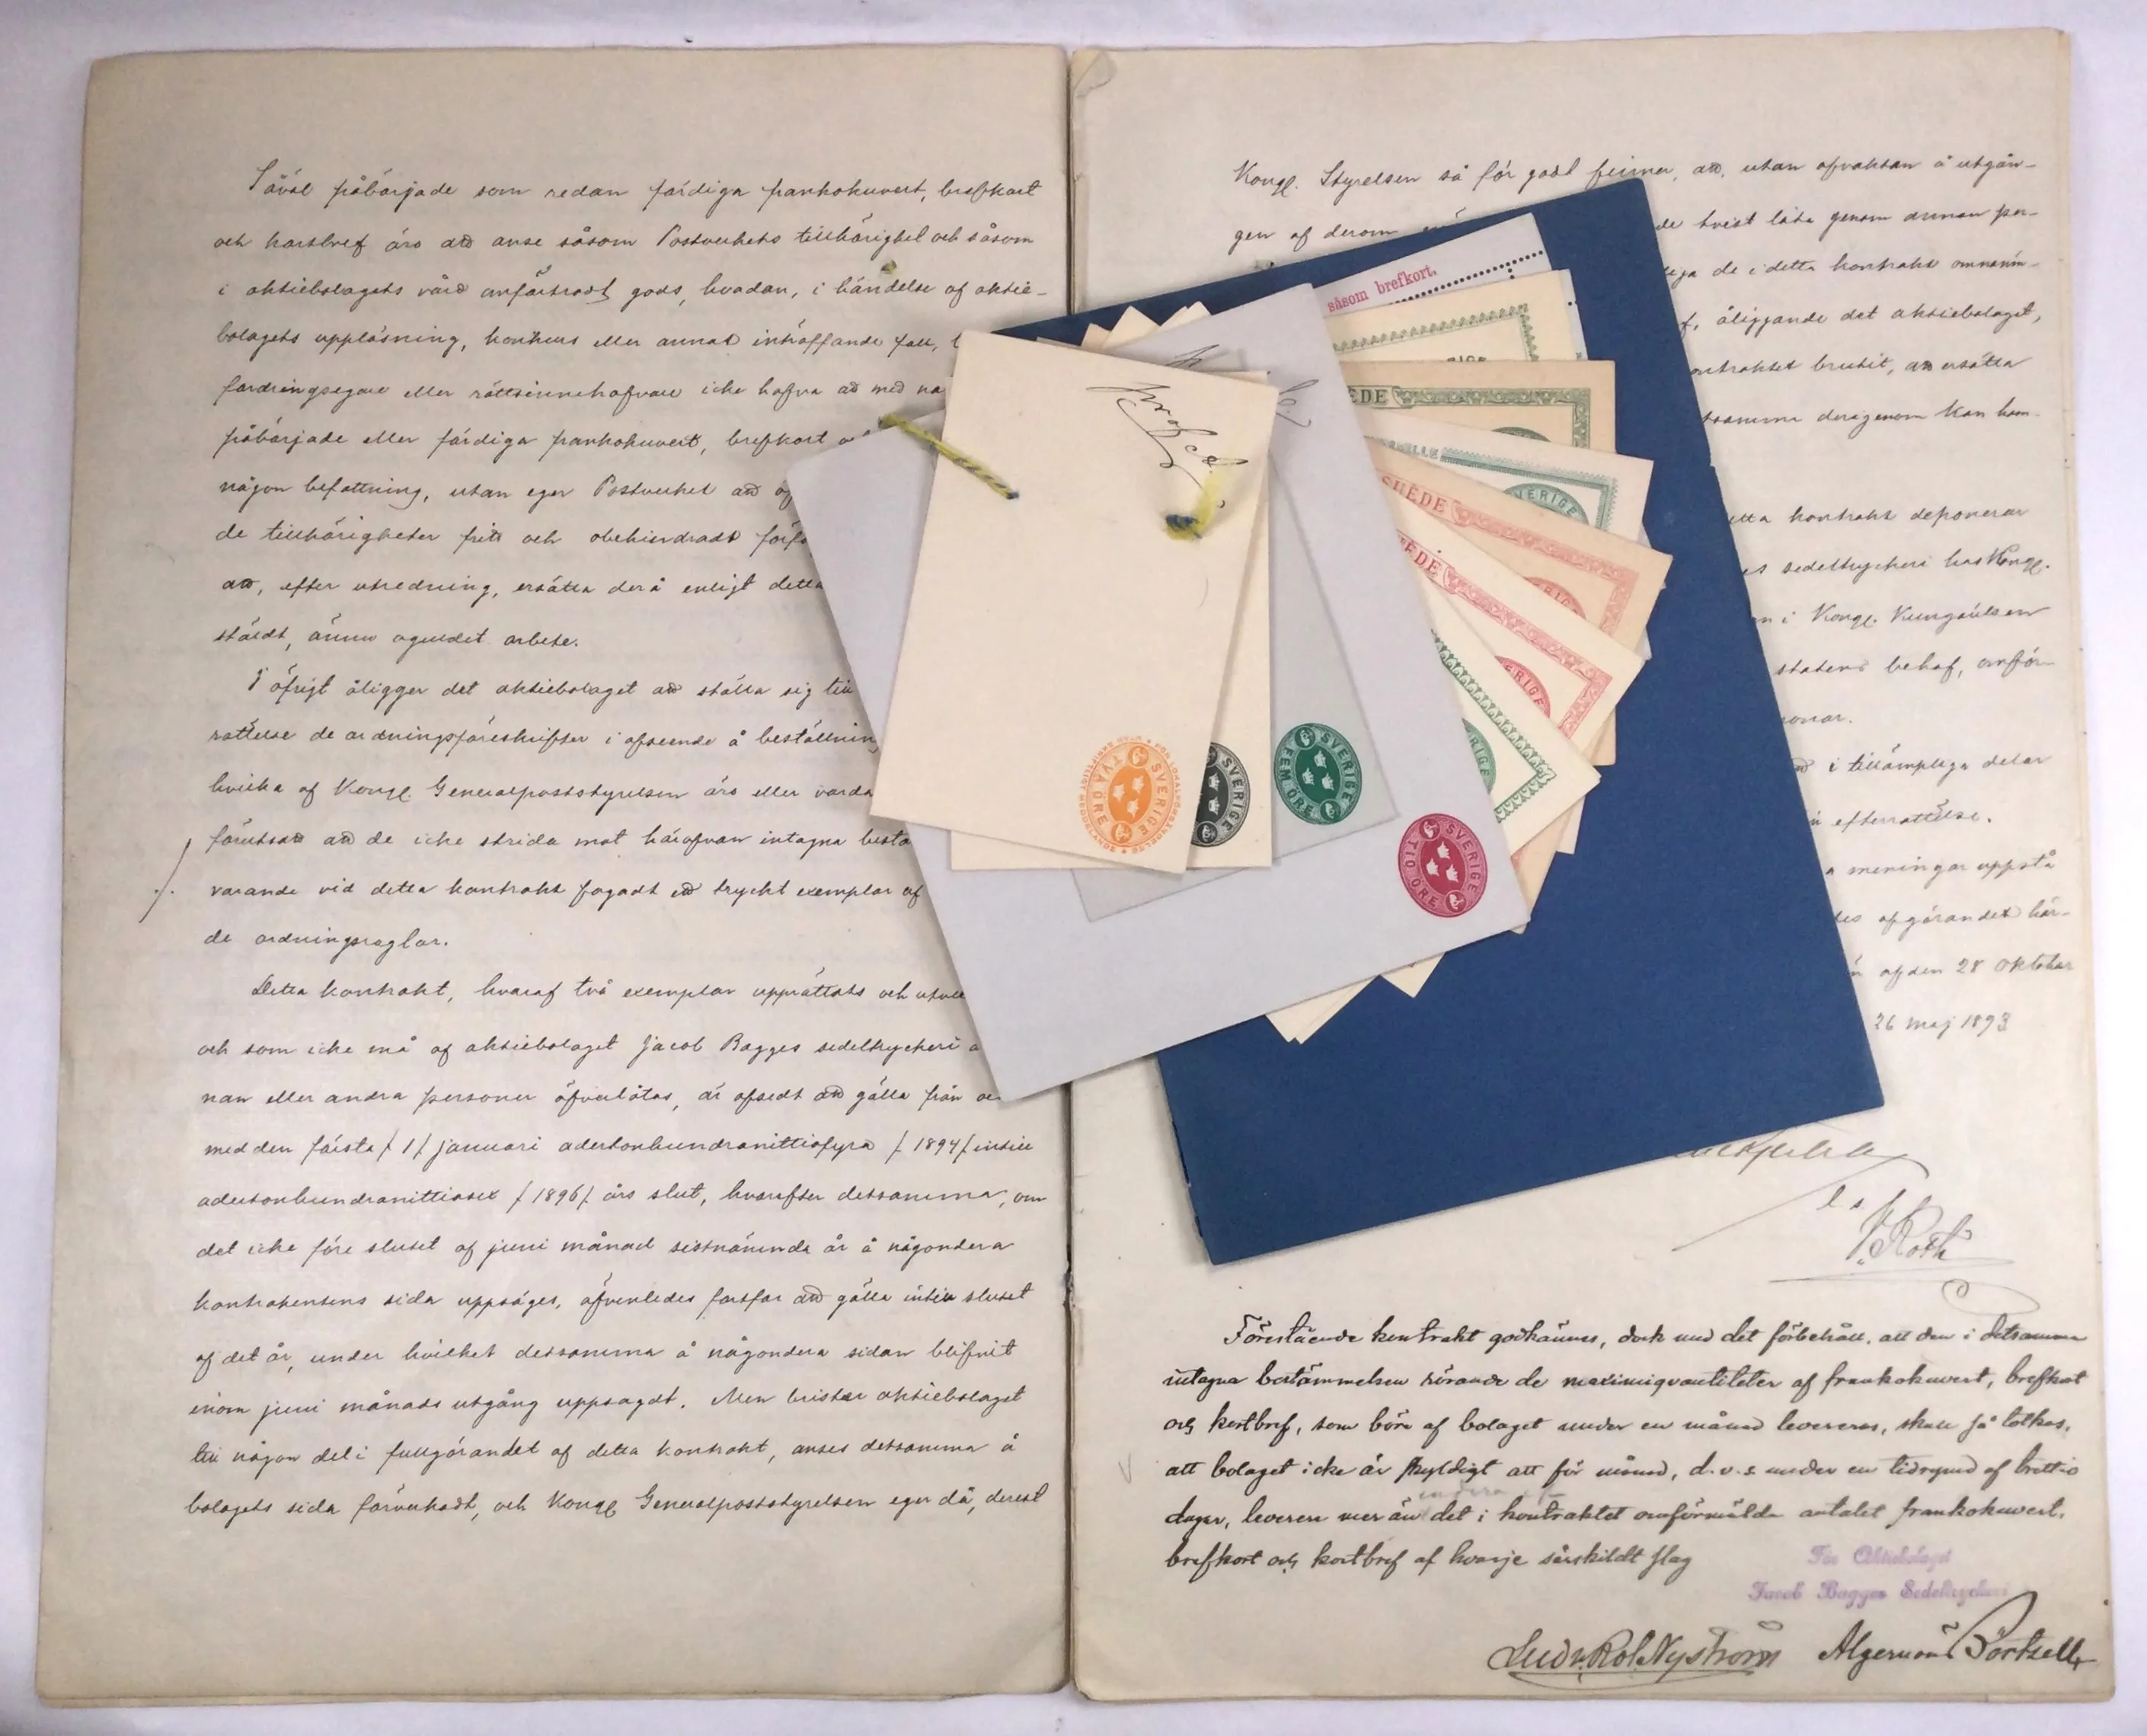 Såväl påbörjade som redan färdiga frankokuvert, brefkort
och kortbref äro att anse såsom Postverkets tillhörighet och såsom
i aktiebolagets vård anförtrodt gods, hvadan, i händelse af aktie-
bolagets upplösning, konkurs eller annat inträffande fall,
fordringsegare eller rättsinnehafvare icke hafva att med
påbörjade eller färdiga frankokuvert, brefkort
någon befattning, utan eger Postverket att
de tillhörigheter fritt och obehindradt
att, efter utredning, ersätta derå enligt detta
stäldt, ännu oguldet arbete.
I öfrigt åligger det aktiebolaget att ställa sig till
rättelse de ordningsföreskrifter i afseende å beställnin
hvilka af Kongl. Generalpoststyrelsen äro eller varda
förutsatt att de icke strida mot härofvan intagna bestä
varande vid detta kontrakt fogadt ett tryckt exemplar af
de ordningsreglor.
Detta kontrakt, hvaraf två exemplar upprättats och
och som icke må af aktiebolaget Jacob Bagges sedeltryckeri å
nan eller andra personer öfverlåtas, är afsedt att gälla från oc
med den första /1/ januari adertonhundranittiofyra /1894/ intill
adertonhundranittiosex /1896/ års slut, hvarefter detsamma, om
det icke före slutet af juni månad sistnämnda år å någondera
kontrahentens sida uppsäges, äfvenledes fortfar att gälla intill slutet
af det år, under hvilket detsamma å någondera sidan blifvit
inom juni månads utgång uppsagdt. Men brister aktiebolaget
till någon del i fullgörandet af detta kontrakt, anses detsamma å
bolagets sida förverkadt, och Kongl Generalpoststyrelsen eger då, derest
Kongl. Styrelsen så för godt finner, att, utan afvaktan å utgån-
gen af derom
de tvist låta genom annan per-
de i detta kontrakt omnäm-
f, åliggande det aktiebolaget,
ontraktet brutit, att ersätta
samma derigenom kan
etta kontrakt deponerar
sedeltryckeri hos Kongl.
n i Kongl. Kungörelsen
statens behof, anför
ronor.
i tillämpliga delar
efterrättelse.
a meningar uppstå
des afgörandet här-
af den 28 oktober
26 maj 1893
såsom brefkort.
SUÈDE
SVERIGE
SUÈDE
SVERIGE
TVÅ ÖRE
SVERIGE
SVERIGE
FEM ÖRE
SVERIGE
TIO ÖRE
Roth
Förestående kontrakt godkännes, dock med det förbehåll, att den i detsamma
intagna bestämmelsen rörande de maximiqvantiteter af frankokuvert, brefkort
och kortbref, som böra af bolaget under en månad levereras, skall så tolkas,
att bolaget icke är skyldigt att för månad, d.v.s. under en tidrymd af trettio
dagar, leverera mer än det i kontraktet omförmälda antalet frankokuvert,
brefkort och kortbref af hvarje särskildt slag
För Aktiebolaget
Jacob Bagges Sedeltryckeri
Ludv. Rob. Nyström Algernon Börtzell